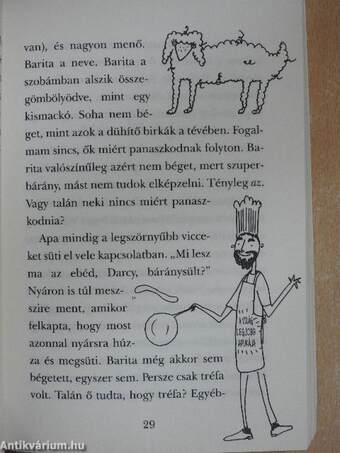 van), és nagyon menő.
Barita a neve. Barita a
szobámban alszik össze-
gömbölyödve, mint egy
kismackó. Soha nem bé-
get, mint azok a dühítő birkák a tévében. Fogal-
mam sincs, ők miért panaszkodnak folyton. Ba-
rita valószínűleg azért nem béget, mert szuper-
bárány, mást nem tudok elképzelni. Tényleg az.
Vagy talán neki nincs miért panasz-
kodnia?
Apa mindig a legszörnyűbb vicce-
ket süti el vele kapcsolatban. „Mi lesz
ma az ebéd, Darcy, báránysült?”
Nyáron is túl mesz-
szire ment, amikor
felkapta, hogy most
azonnal nyársra húz-
za és megsüti. Barita még akkor sem
bégetett, egyszer sem. Persze csak tréfa
volt. Talán ő tudta, hogy tréfa? Egyéb-
A VILÁG
LEGJOBB
APUKÁJA
29
Antikvárium.hu